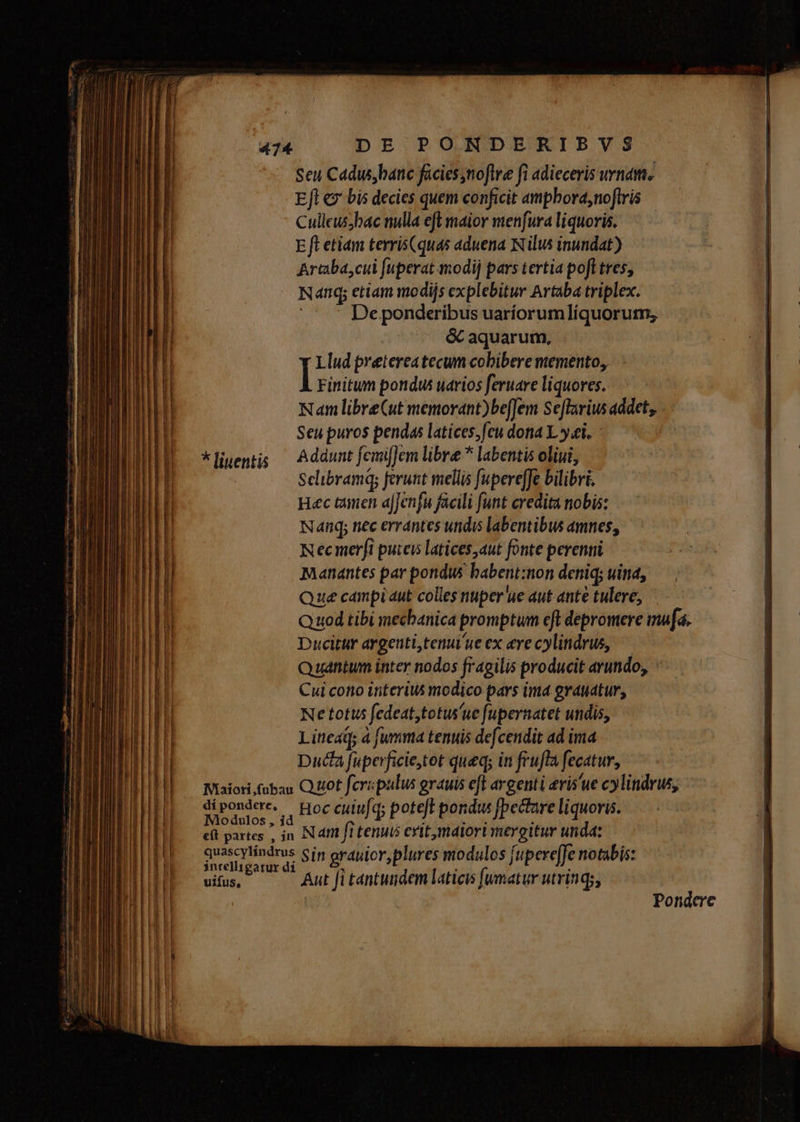 474 DE PONDERIBVS
Seu Cadus,hanc facies,noſtræ ſi adieceris urnam.
Eſt & bis decies quem conficit amphora,noſtris
Culleus,hac nulla eſt maior menſura liquoris.
Eſt etiam terris(quas aduena Nilus inundat)
Artaba,cui ſuperat modij pars tertia poſt tres,
Nanq; etiam modijs explebitur Artaba triplex.
De ponderibus uariorum liquorum,
& aquarum.
ILlud præterea tecum cohibere memento,
Finitum pondus uarios ſeruare liquores.
Nam libræ(ut memorant)beſſem Seſtarius addet,
Seu puros pendas latices,ſeu dona Lyæi.
*liuentis Addunt ſemiſſem libræ * labentis oliui,
Selibramq; ferunt mellis ſupereſſe bilibri.
Hæc tamen aſſenſu facili ſunt credita nobis:
Nanq; nec errantes undis labentibus amnes,
Nec merſi puteis latices,aut fonte perenni
Manantes par pondus habent:non deniq; uina,
Quæ campi aut colles nuper'ue aut antè tulere,
Quod tibi mechanica promptum eſt depromere muſa.
Ducitur argenti,tenui'ue ex ære cylindrus,
Quantum inter nodos fragilis producit arundo,
Cui cono interius modico pars ima grauatur,
Ne totus ſedeat,totus'ue ſupernatet undis,
Lineaq; à ſumma tenuis deſcendit ad ima
Ducta ſuperficie,tot quæq; in fruſta ſecatur,
Maiori,ſubau Quot ſcripulus grauis eſt argenti æris'ue cylindrus,
di pondere. Hoc cuiuſq; poteſt pondus ſpectare liquoris.
Modulos, id
eſt partes , in Nam ſi tenuis erit,maiori mergitur unda:
quas cylindrus Sin grauior,plures modulos ſupereſſe notabis:
intelligatur di
uiſus, Aut ſi tantundem laticis ſumatur utrinq;,
Pondere